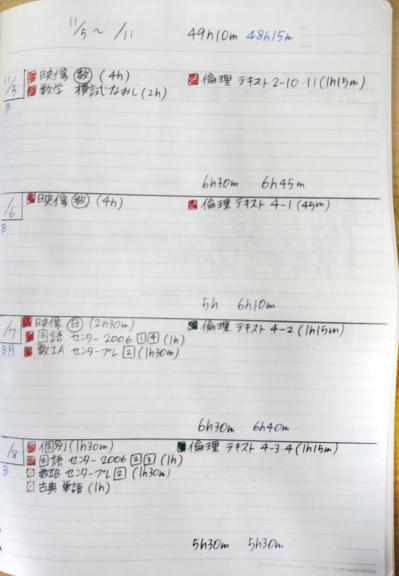 11/5 ~ /11 49h10m 48h15m
11/5 映像 (数) (4h) 倫理 テキスト 2-10・11 (1h15m)
B 数学 模試なおし (2h)
6h30m 6h45m
/6 映像 (数) (4h) 倫理 テキスト 4-1 (45m)
B
5h 6h10m
/7 映像 (日) (2h30m) 倫理 テキスト 4-2 (1h15m)
国語 センター 2006 1 4 (1h)
B 数IA センタープレ 2 (1h30m)
6h30m 6h40m
/8 個別 (1h30m) 倫理 テキスト 4-3・4 (1h15m)
国語 センター 2006 2 3 (1h)
B 数IIB センタープレ 2 (1h30m)
古典 単語 (1h)
5h30m 5h30m